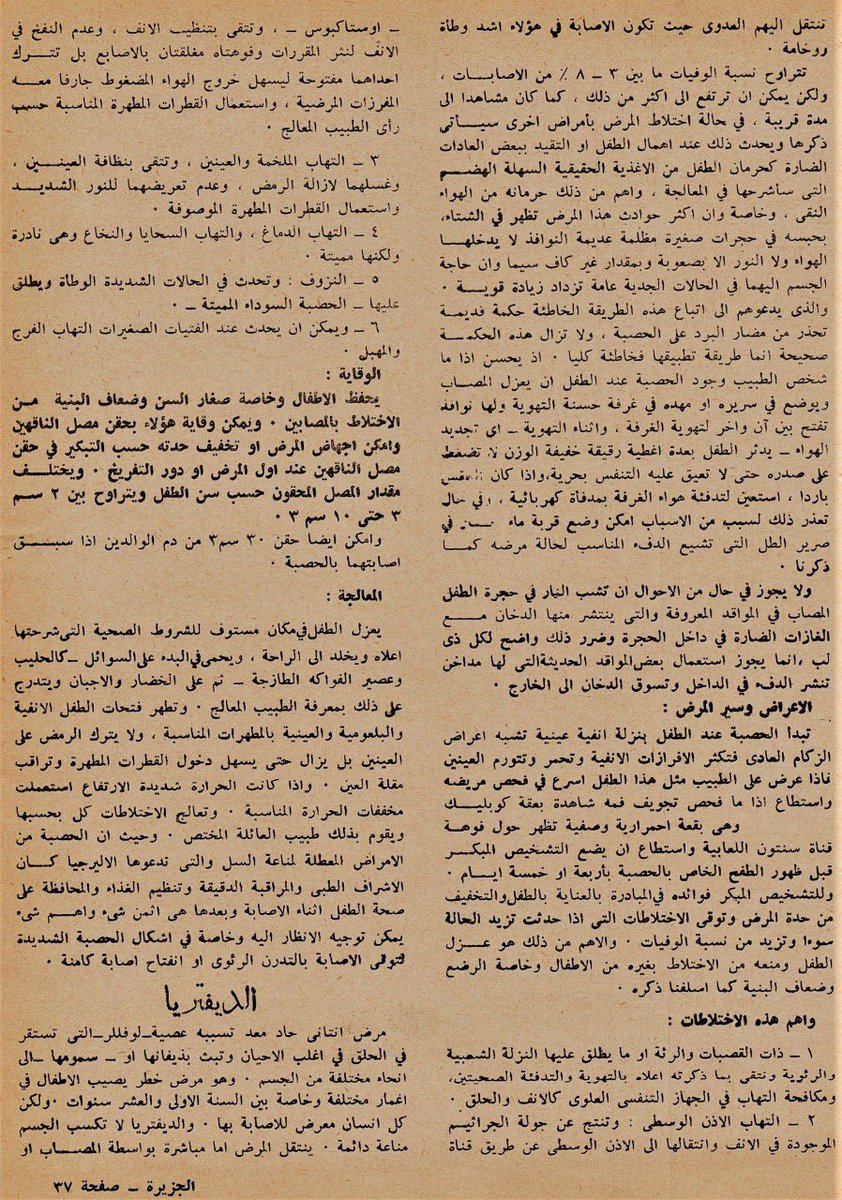 تنتقل اليهم العدوى حيث تكون الاصابة في هؤلاء اشد وطأة
ووخامة ٠
تتراوح نسبة الوفيات ما بين ٣ – ٨ ٪ من الاصابات ،
ولكن يمكن ان ترتفع الى اكثر من ذلك ، كما كان مشاهدا الى
مدة قريبة ، في حالة اختلاط المرض بأمراض اخرى سيأتى
ذكرها ويحدث ذلك عند اهمال الطفل او التقيد ببعض العادات
الضارة كحرمان الطفل من الاغذية الحقيقية السهلة الهضم
التى سأشرحها في المعالجة ، واهم من ذلك حرمانه من الهواء
النقى ، وخاصة وان اكثر حوادث هذا المرض تظهر في الشتاء،
بحبسه في حجرات صغيرة مظلمة عديمة النوافذ لا يدخلها
الهواء ولا النور الا بصعوبة وبمقدار غير كاف سيما وان حاجة
الجسم اليهما في الحالات الجدية عامة تزداد زيادة قويسة ٠
والذى يدعوهم الى اتباع هذه الطريقة الخاطئة حكمة قديمة
تحذر من مضار البرد على الحصبة ، ولا تزال هذه الحكمة
صحيحة انما طريقة تطبيقها فخاطئة كليا ٠ اذ يحسن اذا ما
شخص الطبيب وجود الحصبة عند الطفل ان يعزل المصاب
ويوضع في سريره او مهده في غرفة حسنة التهوية ولها نوافذ
تفتح بين آن وآخر لتهوية الغرفة ، واثناء التهوية – اى تجديد
الهواء – يدثر الطفل بعدة اغطية رقيقة خفيفة الوزن لا تضغط
على صدره حتى لا تعيق عليه التنفس بحرية،واذا كان الطقس
باردا ، استعين لتدفئة هواء الغرفة بمدفأة كهربائية ، وفي حال
تعذر ذلك لسبب من الاسباب امكن وضع قربة ماء في
صرير الطل التى تشيع الدفء المناسب لحالة مرضه كما
ذكرنا ٠
ولا يجوز في حال من الاحوال ان تشب النار في حجرة الطفل
المصاب في المواقد المعروفة والتى ينتشر منها الدخان مع
الغازات الضارة في داخل الحجرة وضرر ذلك واضح لكل ذى
لب ،انما يجوز استعمال بعض المواقد الحديثة التى لها مداخن
تنشر الدفء في الداخل وتسوق الدخان الى الخارج ٠
الاعراض وسير المرض :
تبدا الحصبة عند الطفل بنزلة انفية عينية تشبه اعراض
الزكام العادى فتكثر الافرازات الانفية وتحمر وتتورم العينين
فاذا عرض على الطبيب مثل هذا الطفل اسرع في فحص مريضه
واستطاع اذا ما فحص تجويف فمه شاهدة بعقة كوبليك
وهى بقعة احمرارية وصفية تظهر حول فوهة
قناة سنتون اللعابية واستطاع ان يضع التشخيص المبكر
قبل ظهور الطفح الخاص بالحصبة بأربعة او خمسة ايام ٠
وللتشخيص المبكر فوائده في المبادرة بالعناية بالطفل والتخفيف
من حدة المرض وتوقى الاختلاطات التى اذا حدثت تزيد الحالة
سوءا وتزيد من نسبة الوفيات ٠ والاهم من ذلك هو عزل
الطفل ومنعه من الاختلاط بغيره من الاطفال وخاصة الرضع
وضعاف البنية كما اسلفنا ذكره ٠
واهم هذه الاختلاطات :
١ – ذات القصبات والرئة او ما يطلق عليها النزلة الشعبية
والرئوية وتتقى بما ذكرته اعلاه بالتهوية والتدفئة الصحيتين،
ومكافحة التهاب في الجهاز التنفسى العلوى كالانف والحلق ٠
٢ – التهاب الاذن الوسطى : وتنتج عن جولة الجراثيم
الموجودة في الانف وانتقالها الى الاذن الوسطى عن طريق قناة
– اوستاكيوس – ، وتتقى بتنظيف الانف ، وعدم النفخ في
الانف لنثر المقررات وفوهتاه مغلقتان بالاصابع بل تترك
احداهما مفتوحة ليسهل خروج الهواء المضغوط جارفا معه
المفرزات المرضية ، واستعمال القطرات المطهرة المناسبة حسب
رأى الطبيب المعالج ٠
٣ – التهاب الملخمة والعينين ، وتتقى بنظافة العينين ،
وغسلهما لازالة الرمض ، وعدم تعريضهما للنور الشديد
واستعمال القطرات المطهرة الموصوفة ٠
٤ – التهاب الدماغ ، والتهاب السحايا والنخاع وهى نادرة
ولكنها مميتة ٠
٥ – النزوف : وتحدث في الحالات الشديدة الوطأة ويطلق
عليها – الحصبة السوداء المميتة – ٠
٦ – ويمكن ان يحدث عند الفتيات الصغيرات التهاب الفرج
والمهبل ٠
الوقاية :
يحفظ الاطفال وخاصة صغار السن وضعاف البنية من
الاختلاط بالمصابين ٠ ويمكن وقاية هؤلاء بحقن مصل الناقهين
وامكن اجهاض المرض او تخفيف حدته حسب التبكير في حقن
مصل الناقهين عند اول المرض او دور التفريخ ٠ ويختلف
مقدار المصل المحقون حسب سن الطفل ويتراوح بين ٢ سم
٣ حتى ١٠ سم ٣ ٠
وامكن ايضا حقن ٣٠ سم٣ من دم الوالدين اذا سبق
اصابتهما بالحصبة ٠
المعالجة :
يعزل الطفل في مكان مستوف للشروط الصحية التى شرحتها
اعلاه ويخلد الى الراحة ، ويحمى في البدء على السوائل – كالحليب
وعصير الفواكه الطازجة – ثم على الخضار والاجبان ويتدرج
على ذلك بمعرفة الطبيب المعالج ٠ وتطهر فتحات الطفل الانفية
والبلعومية والعينية بالمطهرات المناسبة ، ولا يترك الرمض على
العينين بل يزال حتى يسهل دخول القطرات المطهرة وتراقب
مقلة العين ٠ واذا كانت الحرارة شديدة الارتفاع استعملت
مخففات الحرارة المناسبة ٠ وتعالج الاختلاطات كل بحسبها
ويقوم بذلك طبيب العائلة المختص ٠ وحيث ان الحصبة من
الامراض المعطلة لمناعة السل والتى تدعوها الاليرجيا كان
الاشراف الطبى والمراقبة الدقيقة وتنظيم الغذاء والمحافظة على
صحة الطفل اثناء الاصابة وبعدها هى اثمن شىء واهم شىء
يمكن توجيه الانظار اليه وخاصة في اشكال الحصبة الشديدة
لتوقى الاصابة بالتدرن الرئوى او انفتاح اصابة كامنة ٠
الديفتريا
مرض انتانى حاد معد تسببه عصية–لوفللر–التى تستقر
في الحلق في اغلب الاحيان وتبث بذيفانها او – سمومها –الى
انحاء مختلفة من الجسم ٠ وهو مرض خطر يصيب الاطفال في
اعمار مختلفة وخاصة بين السنة الاولى والعشر سنوات ٠ولكن
كل انسان معرض للاصابة بها ٠ والديفتريا لا تكسب الجسم
مناعة دائمة ٠ ينتقل المرض اما مباشرة بواسطة المصاب او
الجزيرة – صفحة ٣٧